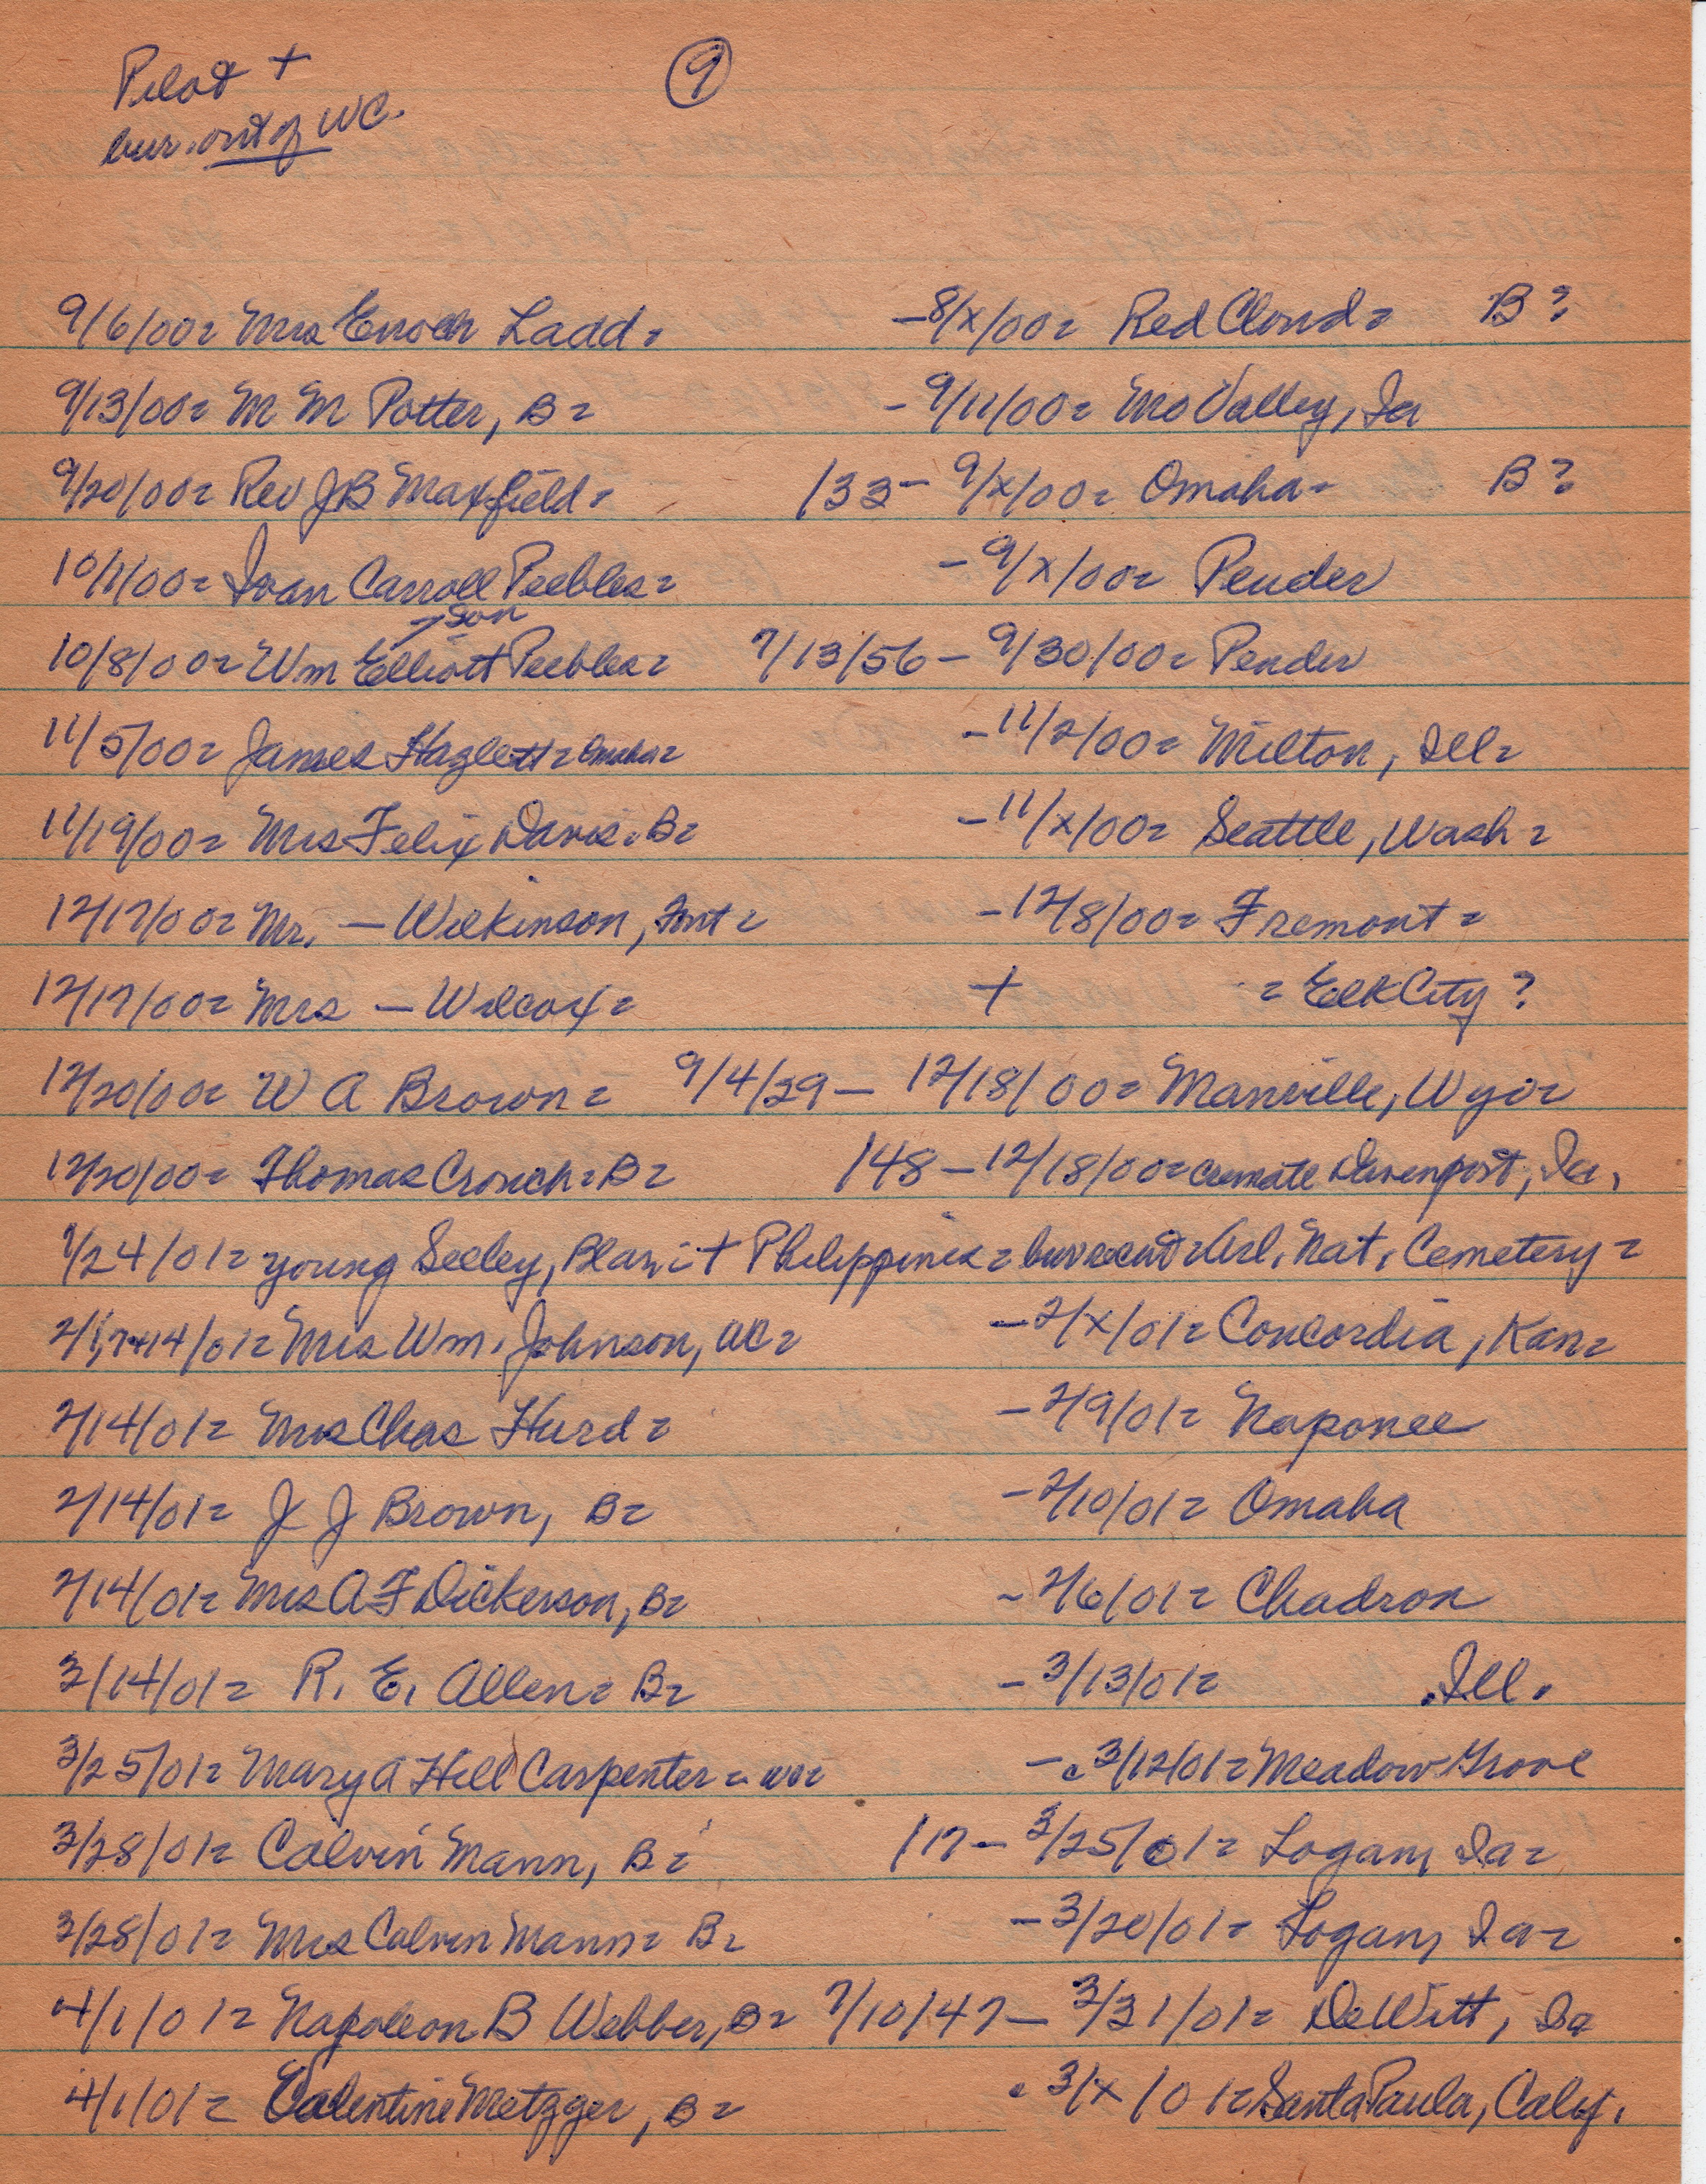 Pilot +
bur. out of WC.
9
9/6/00= Mrs Enoch Ladd= -8/x/00= Red Cloud= B?
9/13/00= M M Potter, B= -9/11/00= Mo Valley, Ia
9/20/00= Rev J B Maxfield= 133- 9/x/00= Omaha- B?
10/1/00= Ivan Carroll Peebles= -9/x/00= Pender
son
10/8/00= Wm Elliott Peebles= 7/13/56- 9/30/00= Pender
11/5/00= James Hazlett= Omaha= -11/2/00= Milton, Ill=
11/19/00= Mrs Felix Davis=B= -11/x/00= Seattle, Wash=
12/17/00= Mr. - Wilkinson, Font= -12/8/00= Fremont=
12/17/00= Mrs - Wilcox= + = Elk City?
12/20/00= W A Brown= 9/4/29- 12/18/00= Manville, Wyo=
12/20/00= Thomas Crouch=B= 148-12/18/00=cremate Davenport, Ia.
1/24/01= young Seeley, Blair=+ Philippines= bur Arl. Nat. Cemetery=
2/1,7+14/01= Mrs Wm. Johnson, WC= -2/x/01= Concordia, Kan=
2/14/01= Mrs Chas Hurd= -2/9/01= Naponee
2/14/01= J J Brown, B= -2/10/01= Omaha
2/14/01= Mrs A F Dickerson, B= -2/6/01= Chadron
3/14/01= R. E. Allen= B= -3/13/01= Ill.
3/25/01= Mary A Hill Carpenter= wc= -c3/12/01= Meadow Grove
3/28/01= Calvin Mann, B= 117- 3/25/01= Logan, Ia=
3/28/01= Mrs Calvin Mann= B= -3/20/01= Logan, Ia=
4/1/01= Napoleon B Webber, B= 7/10/47- 3/31/01= DeWitt, Ia
4/1/01= Valentine Metzger, B= 3/x/01= Santa Paula, Calif.